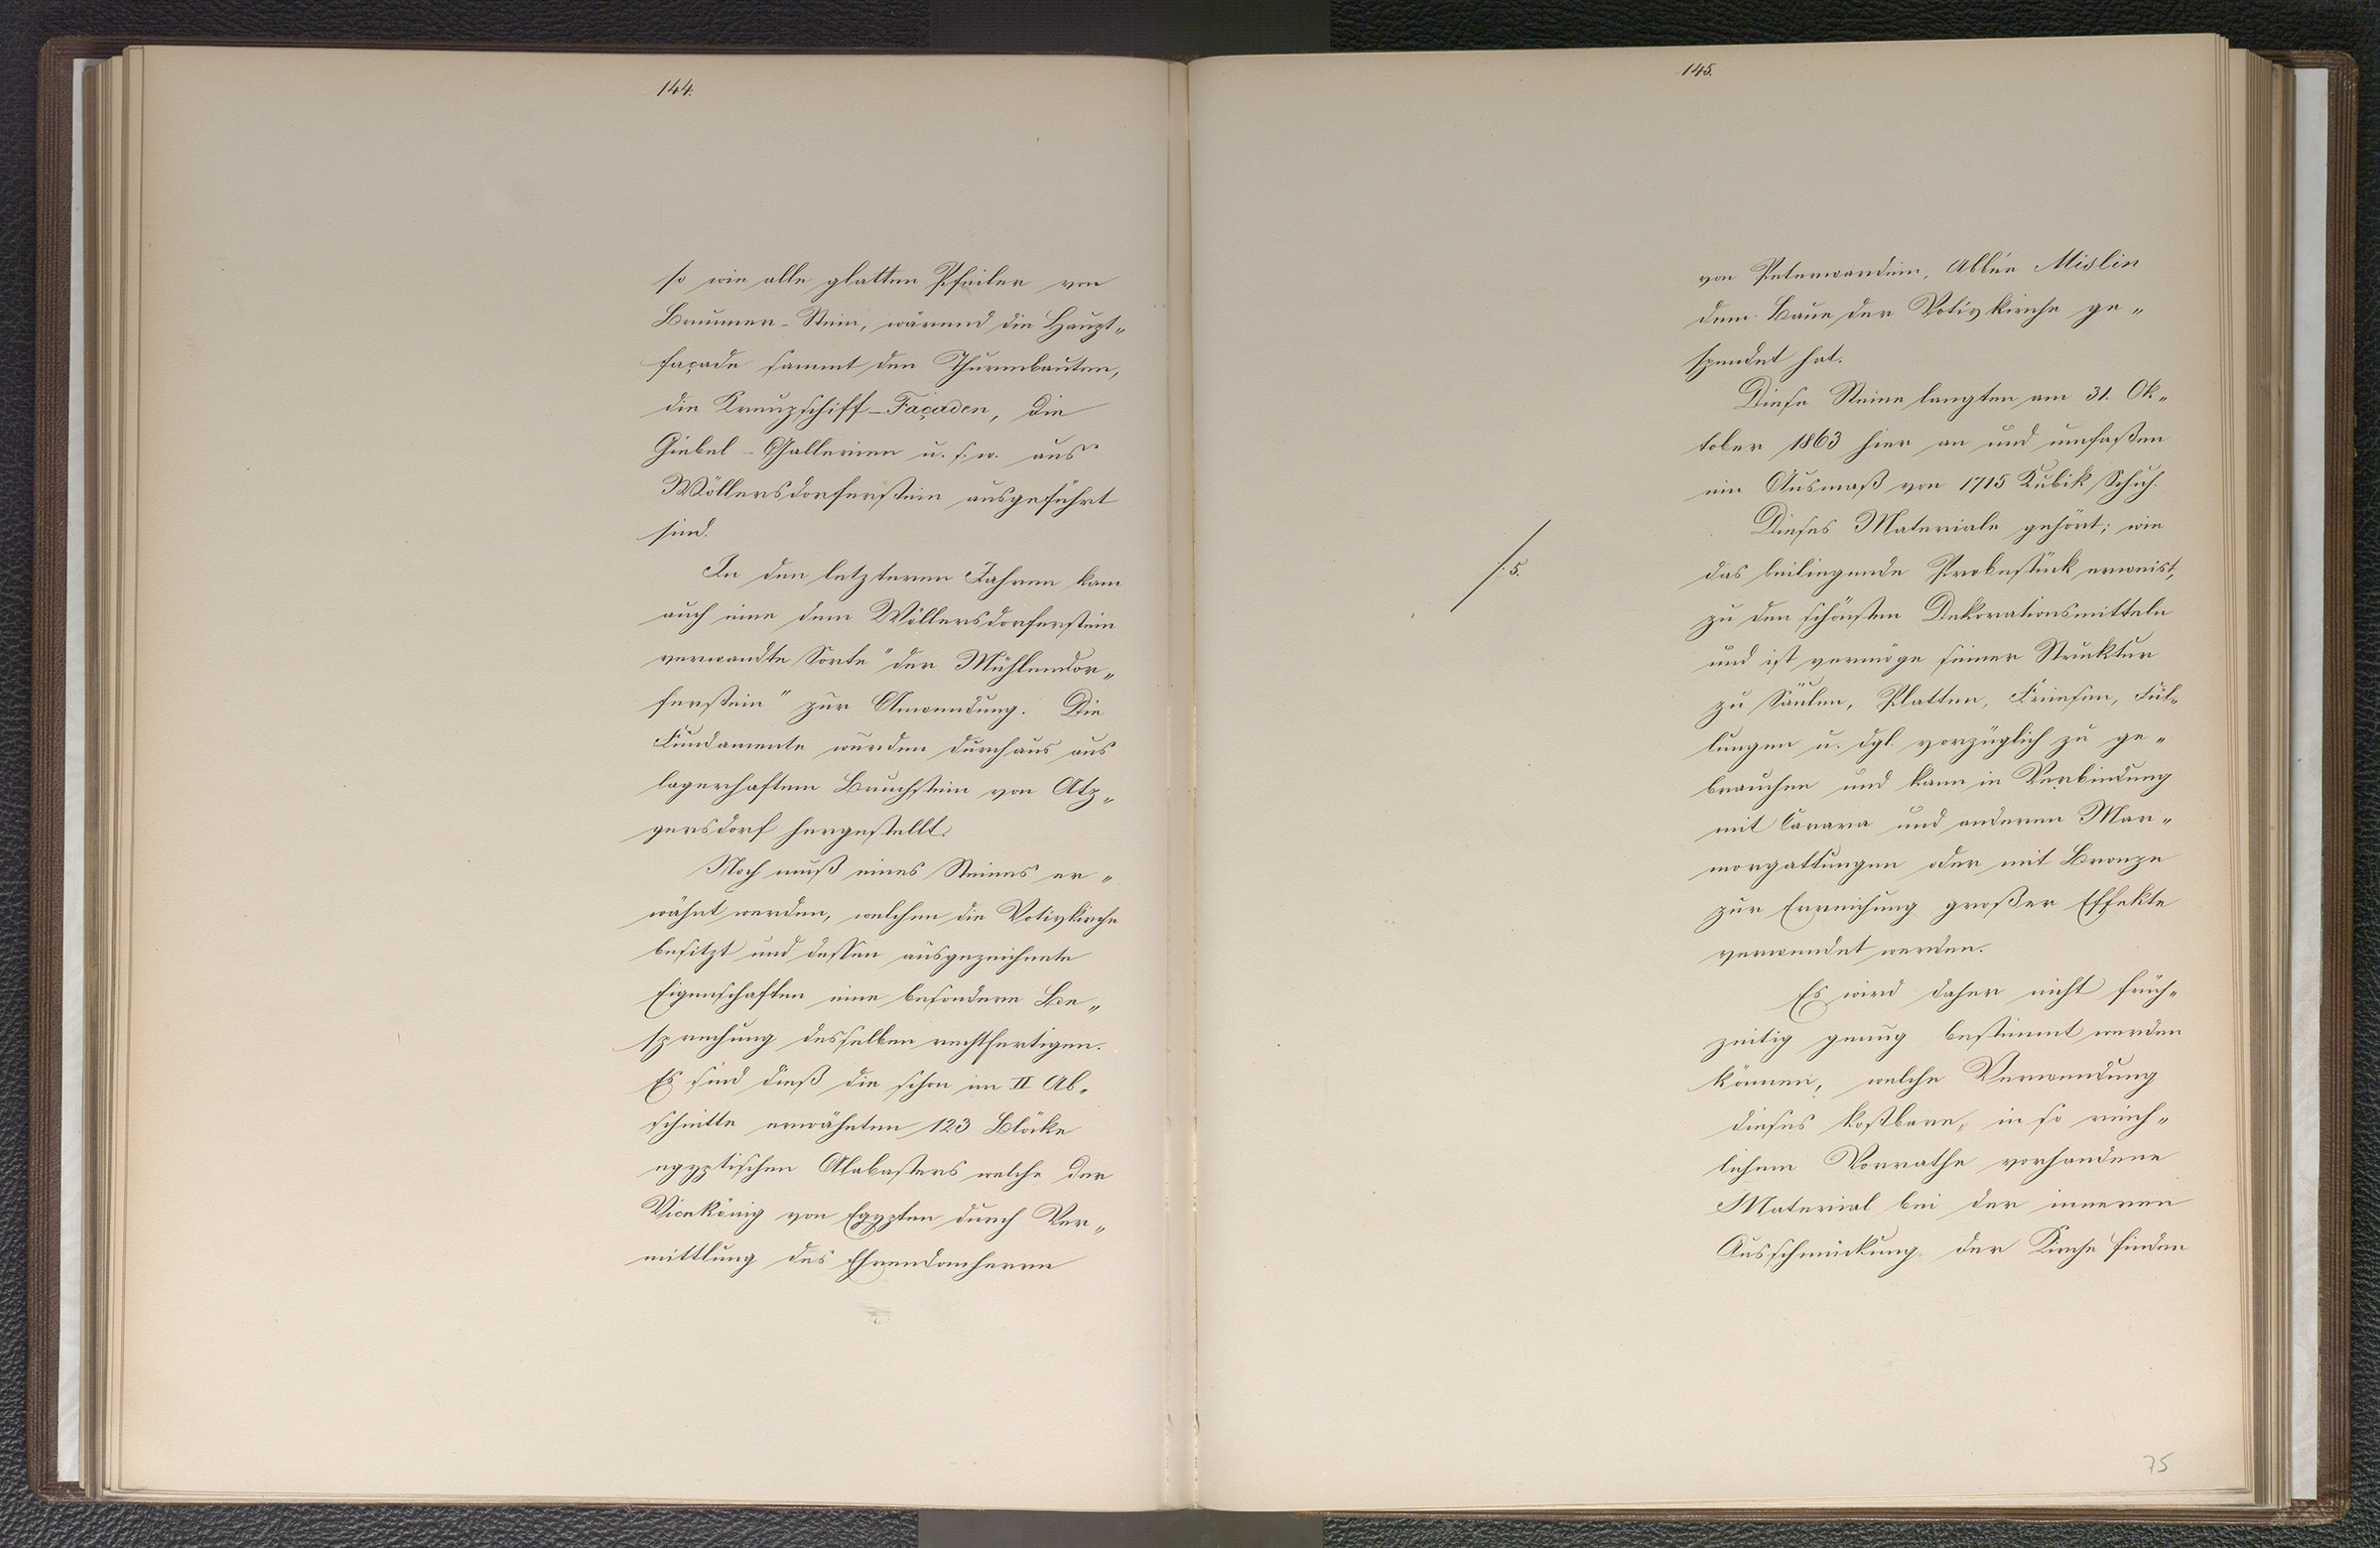 144.
so wie alle glatten Pfeiler von
Brunner-Stein, wärend die Haupt„
façade sammt den Thurmbauten,
die Kreuzschiff-Façaden, die
Giebel-Gallerien u. s. w. aus
Wöllersdorferstein ausgeführt
sind.
In den letzteren Jahren kam
auch eine dem Wöllersdorferstein
verwandte Sorte "der Mühlendor„
ferstein" zur Anwendung. Die
Fundamente wurden durchaus aus
lagerhaftem Bruchstein von Atz„
gersdorf hergestellt.
Noch muß eines Steines er„
wähnt werden, welchen die Votivkirche
besitzt und dessen ausgezeichnete
Eigenschaften eine besondere Be„
sprechung desselben rechtfertigen.
Es sind dieß die schon im II Ab„
schnitte erwähnten 123 Blöcke
egyptischen Alabasters welche der
Vicekönig von Egypten durch Ver„
mittlung des Ehrendomherrn
145.
von Peterwardein, Abbée Mislin
dem Baue der Votivkirche ge„
spendet hat.
Diese Steine langten am 31. Ok„
tober 1863 hier an und umfaßen
ein Ausmaß von 1715 Kubik Schuh.
Dieses Materiale gehört; wie
/5.
das beiliegende Probestück erweist,
zu den schönsten Dekorationsmitteln
und ist vermöge seiner Struktur
zu Säulen, Platten, Friesen, Fül„
lungen u. dgl. vorzüglich zu ge„
brauchen und kann in Verbindung
mit Carara und anderen Mar„
morgattungen oder mit Bronze
zur Erreichung großer Effekte
verwendet werden.
Es wird daher nicht früh„
zeitig genug bestimmt werden
können, welche Verwendung
dieses kostbare, in so reich„
lichem Vorrathe vorhandene
Material bei der inneren
Ausschmückung der Kirche finden
75